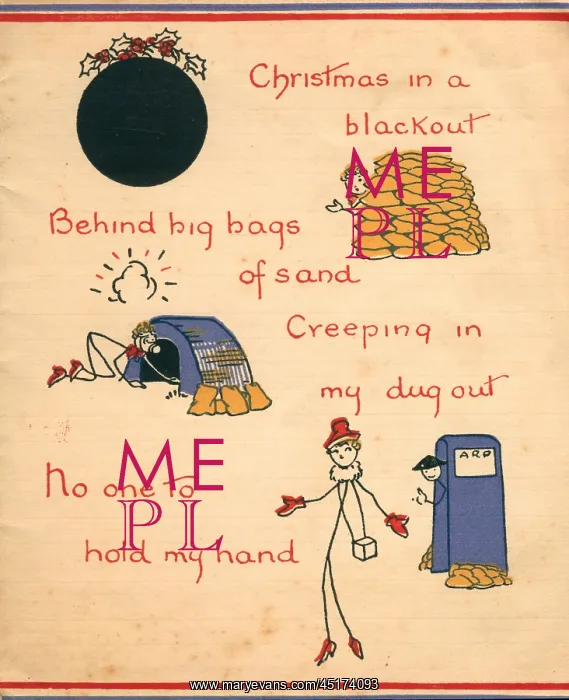 Christmas in a
blackout
ME
PL
Behind big bags
of sand
Creeping in
my dug out
ARP
ME
PL
No one to
hold my hand
www.maryevans.com/45174093